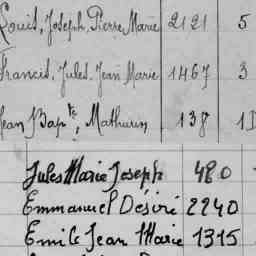 Louis, Joseph, Pierre Marie 2121 5
Francis, Jules, Jean Marie 1467 3
Jean Bapte, Mathurin 138 1
Jules Marie Joseph 480
Emmanuel Désiré 2240
Emile Jean Marie 1315